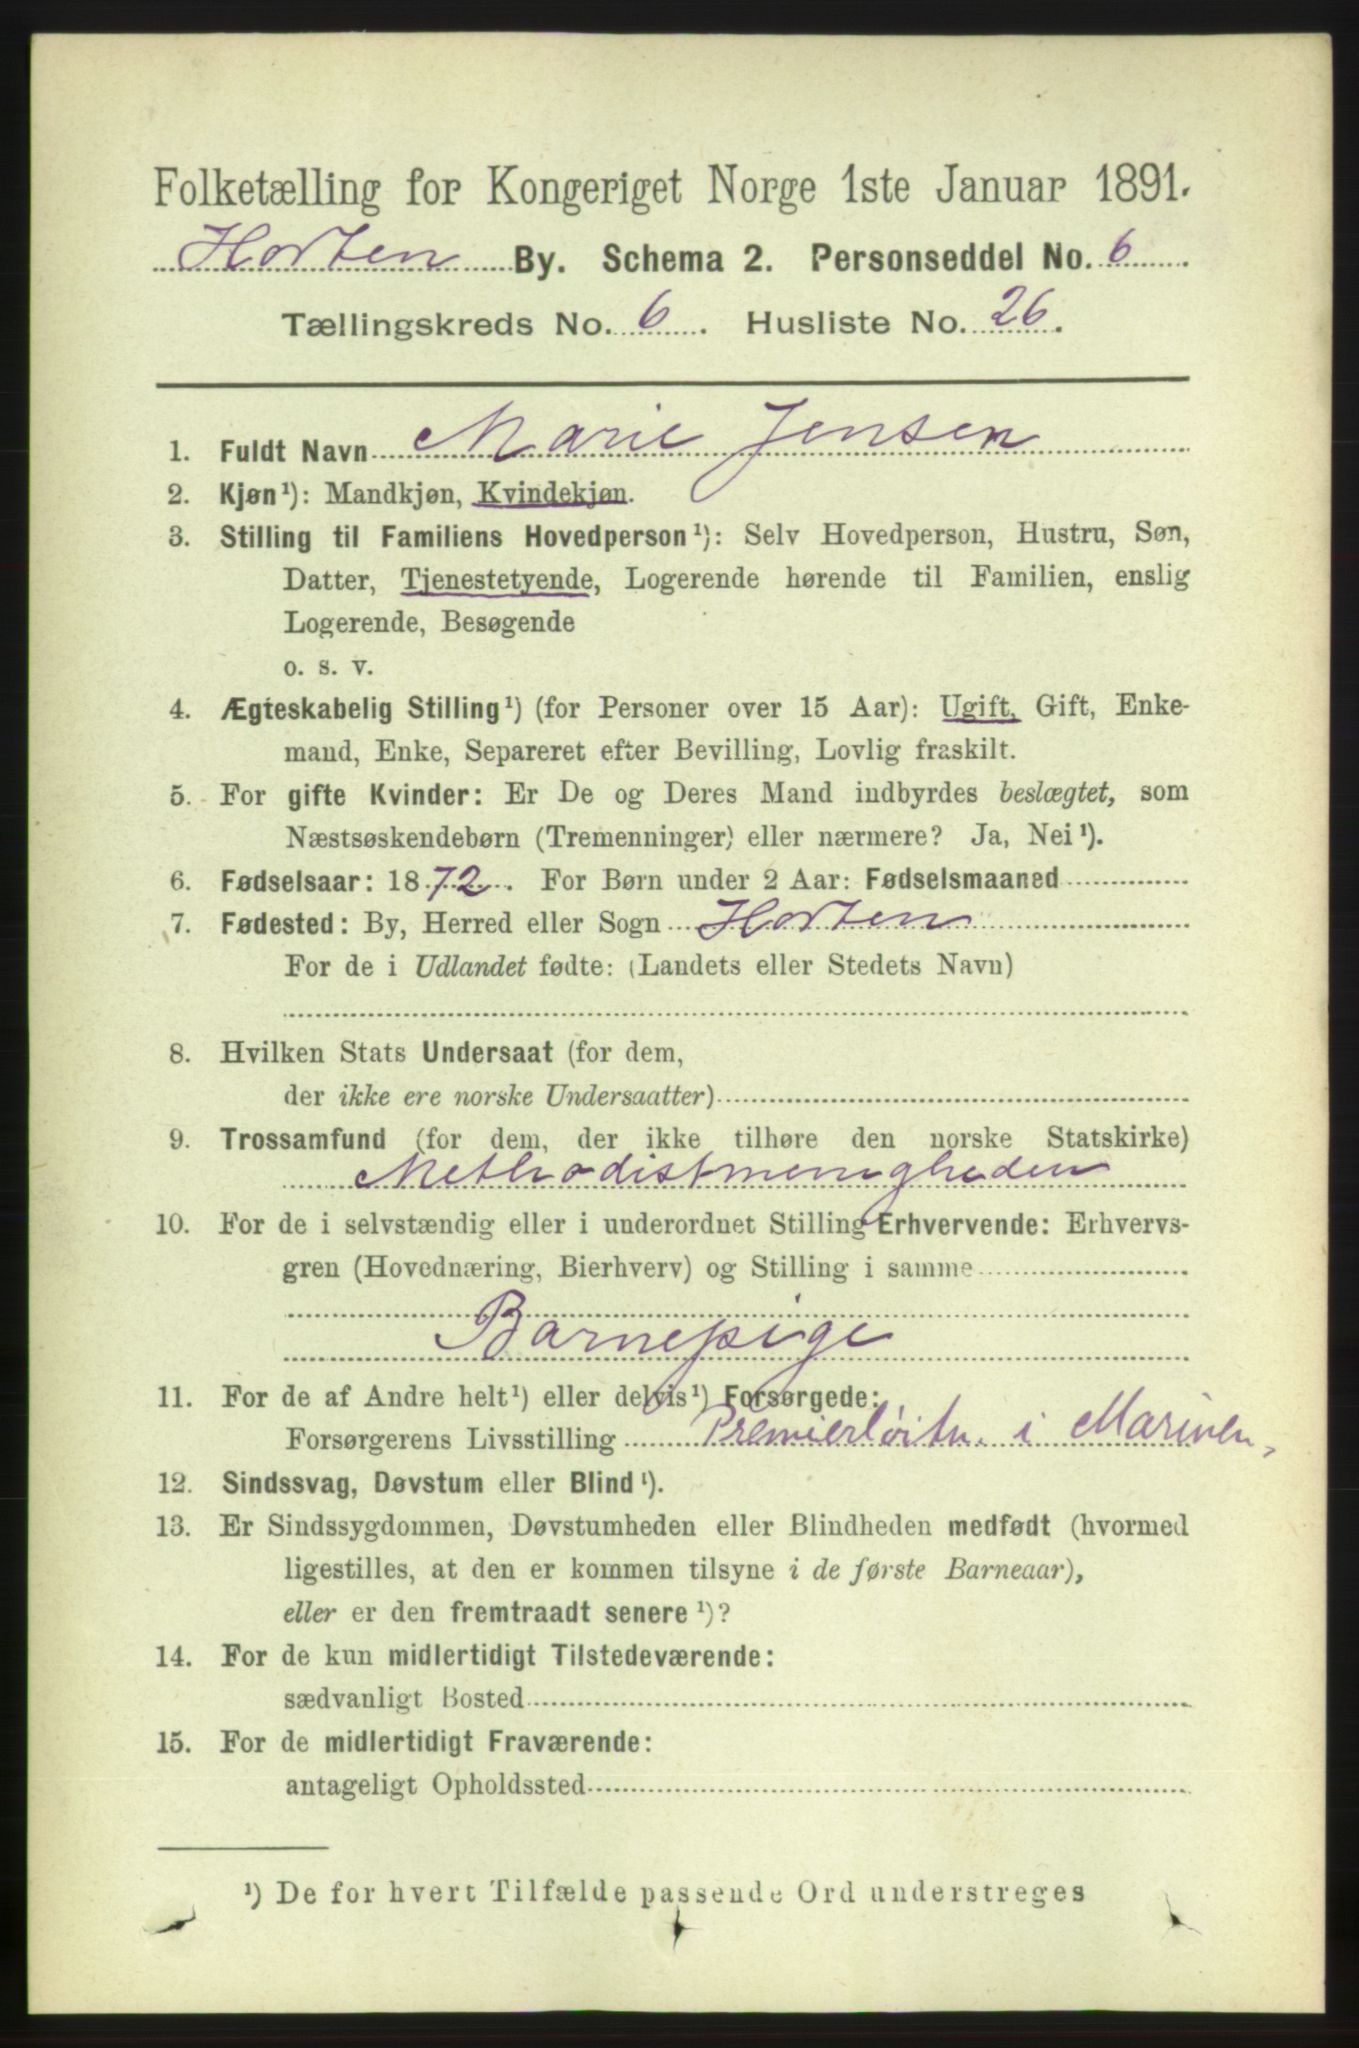 Folketælling for Kongeriget Norge 1ste Januar 1891.
Horten By. Schema 2. Personseddel No. 6
Tællingskreds No. 6. Husliste No. 26.
1. Fuldt Navn Marie Jensen
2. Kjøn¹): Mandkjøn, Kvindekjøn.
3. Stilling til Familiens Hovedperson¹): Selv Hovedperson, Hustru, Søn,
Datter, Tjenestetyende, Logerende hørende til Familien, enslig
Logerende, Besøgende
o. s. v.
4. Ægteskabelig Stilling¹) (for Personer over 15 Aar): Ugift, Gift, Enke-
mand, Enke, Separeret efter Bevilling, Lovlig fraskilt.
5. For gifte Kvinder: Er De og Deres Mand indbyrdes beslægtet, som
Næstsøskendebørn (Tremenninger) eller nærmere? Ja, Nei¹).
6. Fødselsaar: 1872. For Børn under 2 Aar: Fødselsmaaned
7. Fødested: By, Herred eller Sogn Horten
For de i Udlandet fødte: (Landets eller Stedets Navn)
8. Hvilken Stats Undersaat (for dem,
der ikke ere norske Undersaatter)
9. Trossamfund (for dem, der ikke tilhøre den norske Statskirke)
Methodistmenigheden
10. For de i selvstændig eller i underordnet Stilling Erhvervende: Erhvervs-
gren (Hovednæring, Bierhverv) og Stilling i samme
Barnepige
11. For de af Andre helt¹) eller delvis¹) Forsørgede:
Forsørgerens Livsstilling Premierløitn. i Marinen,
12. Sindssvag, Døvstum eller Blind¹).
13. Er Sindssygdommen, Døvstumheden eller Blindheden medfødt (hvormed
ligestilles, at den er kommen tilsyne i de første Barneaar),
eller er den fremtraadt senere¹)?
14. For de kun midlertidigt Tilstedeværende:
sædvanligt Bosted
15. For de midlertidigt Fraværende:
antageligt Opholdssted
¹) De for hvert Tilfælde passende Ord understreges